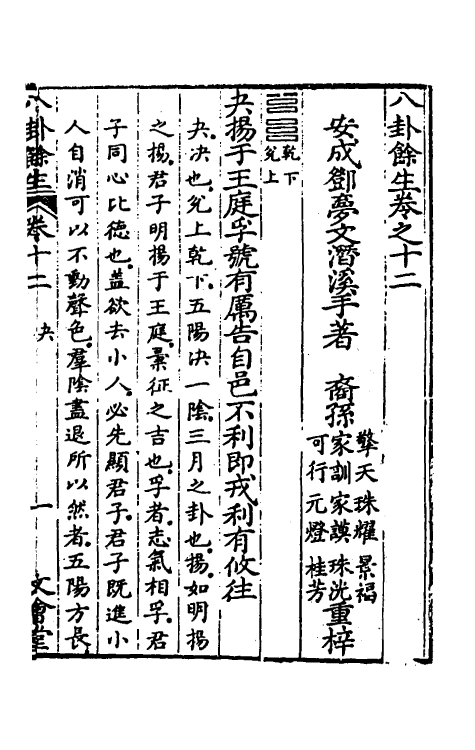 八卦餘生卷之十二
安成鄧夢文濳溪手著 裔孫 擎天 珠耀 景福 家訓 家謨 珠洸 可行 元燈 桂芳 重梓
乾下 兌上
夬揚于王庭孚號有厲告自邑不利即戎利有攸往
夬決也兌上乾下五陽決一陰三月之卦也揚如明揚
之揚君子明揚于王庭彚征之吉也孚者志氣相孚君
子同心比德也蓋欲去小人必先顯君子君子既進小
人自消可以不動聲色羣陰盡退所以然者五陽方長
八卦餘生 卷十二 夬 一 文會堂